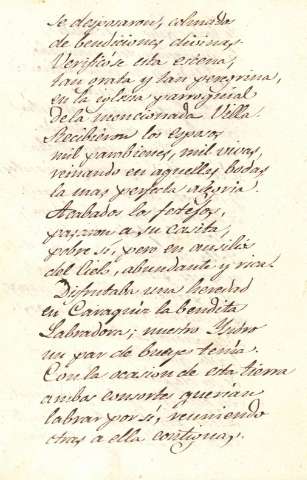 se desposaron, colmada
de bendiciones divinas.
Verificóse esta escena,
tan grata y tan peregrina,
en la iglesia parroquial
de la mencionada Villa.
Recibieron los esposos
mil parabienes, mil vivas,
reinando en aquellas bodas
la mas perfecta alegria.
Acabados los festejos,
pasaron a su casita,
pobre sí, pero en ausilios
del Cielo, abundante y rica.
Disfrutaba una heredad
en Caraquiz la bendita
Labradora; nuestro Ysidro
un par de bueyes tenía.
Con la ocasion de esta tierra
ambos consortes querían
labrar por sí, reuniendo
otras a ella contiguas.